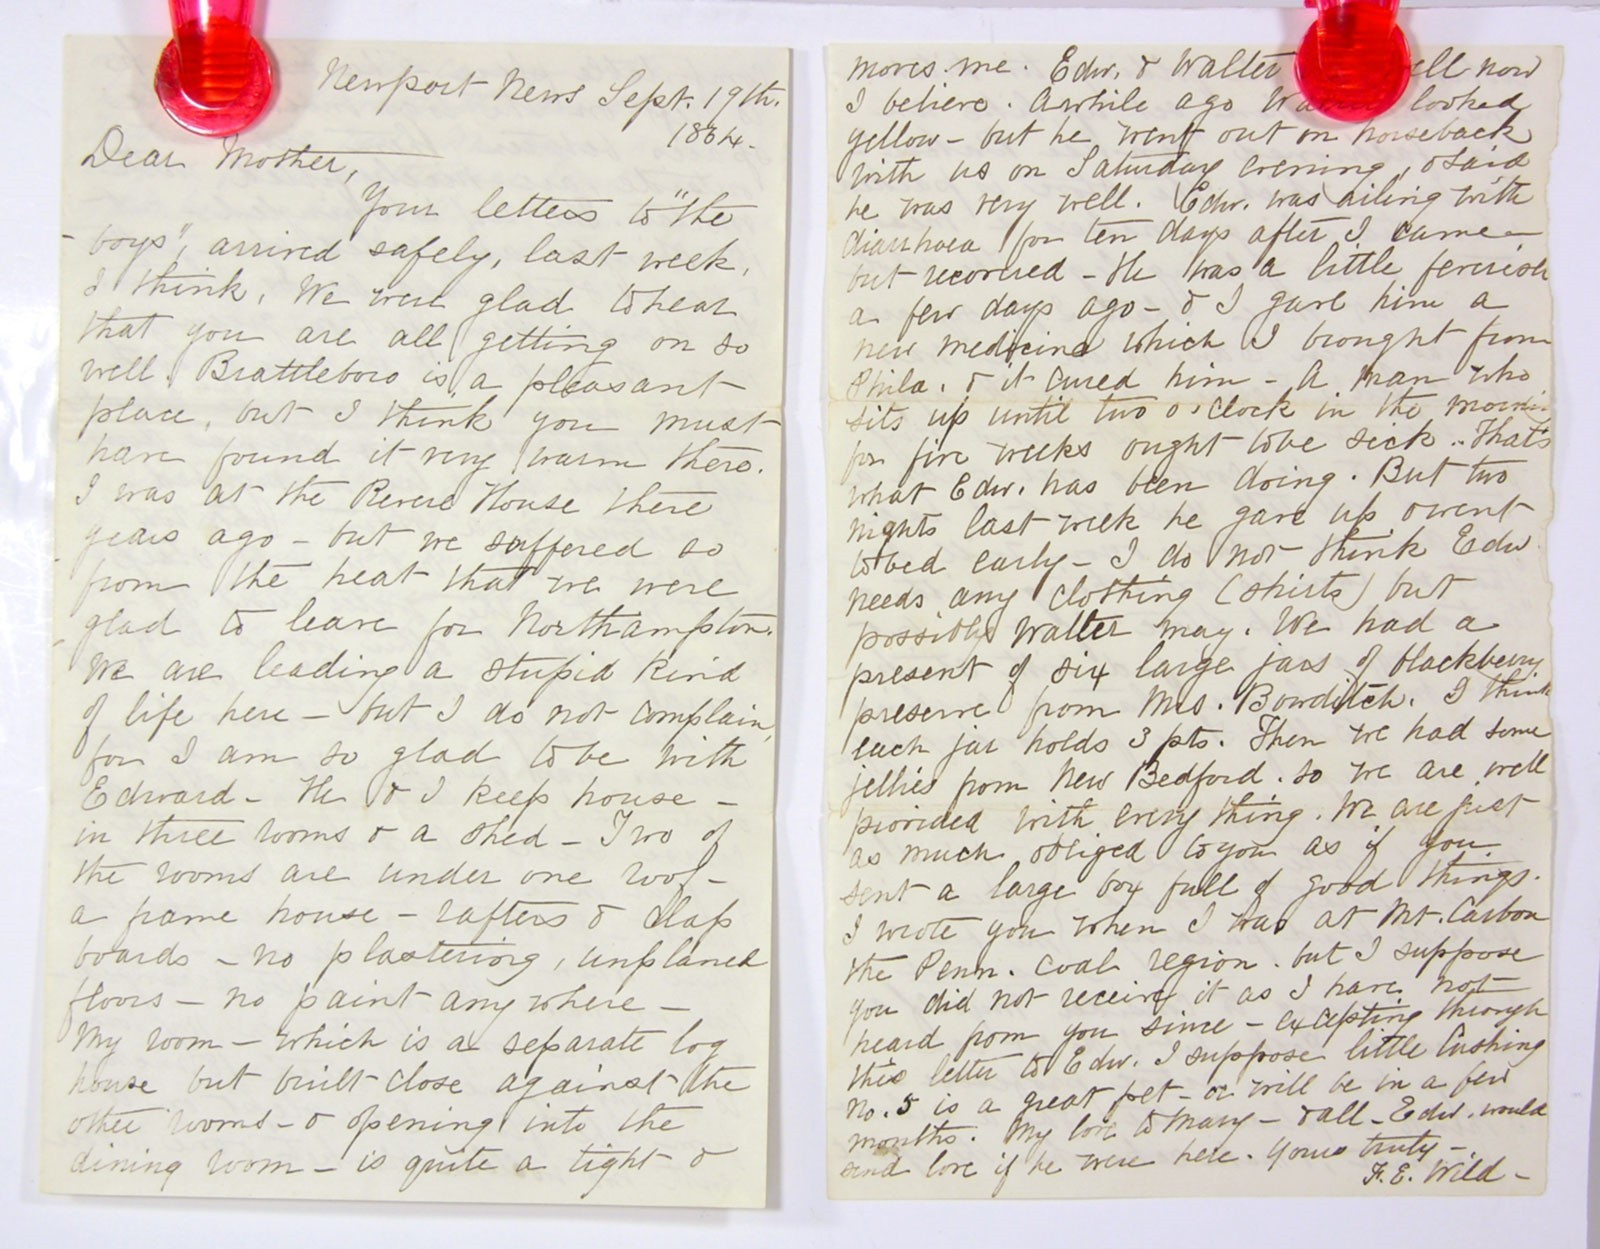 Newport News Sept. 19th.
1864.
Dear Mother,
Your letters to "the
boys", arrived safely, last week,
I think. We were glad to hear
that you are all getting on so
well. Brattleboro is a pleasant
place, but I think you must
have found it very warm there.
I was at the Revere House there
years ago - but we suffered so
from the heat that we were
glad to leave for Northampton.
We are leading a stupid kind
of life here - but I do not complain,
for I am so glad to be with
Edward - He & I keep house -
in three rooms & a shed - Two of
the rooms are under one roof -
a frame house - rafters & clap
boards - no plastering, unplaned
floors - no paint anywhere -
My room - which is a separate log
house but built close against the
other rooms - & opening into the
dining room - is quite a tight &
moves me. Edw. & Walter ell now
I believe. Awhile ago looked
yellow - but he went out on horseback
with us on Saturday evening, & said
he was very well. Edw. was ailing with
diarrhoea for ten days after I came -
but recovered - He was a little feverish
a few days ago - & I gave him a
new medicine which I brought from
Phila. & it cured him - A man who
sits up until two o'clock in the
for five weeks ought to be sick .. That's
what Edw. has been doing. But two
nights last week he gave up & went
to bed early - I do not think Edw.
needs any clothing (shirts) but
possibly Walter may. We had a
present of six large jars of blackberry
preserve from Mrs. Bowditch. I think
each jar holds 3 pts. Then we had some
jellies from New Bedford. so we are well
provided with every thing. We are just
as much obliged to you as if you
sent a large box full of good things.
I wrote you when I was at Mt. Carbon
the Penn. coal region. but I suppose
you did not receive it as I have not
heard from you since - excepting through
this letter to Edw. I suppose little Cushing
No. 5 is a great pet - or will be in a few
months. My love to Mary - & all - Edw. would
send love if he were here. Yours truly -
F. E. Wild -